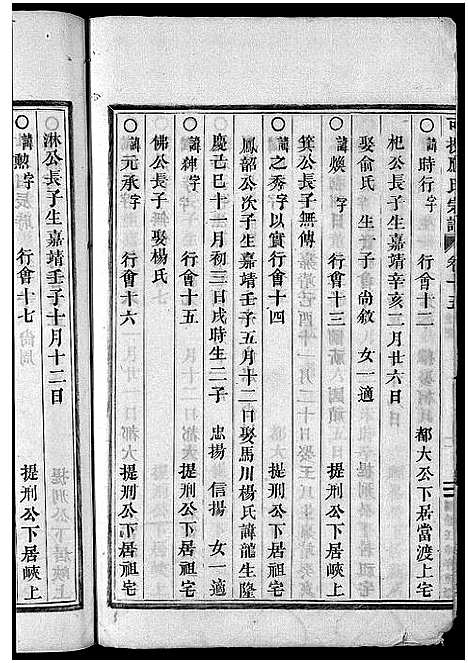 氏宗譜 卷十五
○諱時行字 行會十二 都大公下居當渡上宅
杞公長子生嘉靖辛亥二月廿六日
娶俞氏 生一子尚敘 女一適
○諱煥字 行會十三
箕公長子無傳
○諱之秀字以實行會十四 提刑公下居祖宅
鳳韶公次子生嘉靖壬子五月十二日娶馬川楊氏諱龍生隆
慶己巳十一月初三日戌時生二子 忠揚 信揚 女一適
○諱紳字 行會十五 提刑公下居祖宅
佛公長子無娶楊氏
○諱元承字 行會十六 提刑公下居峽上
淋公長子生嘉靖壬子十月十二日
○諱勲字 行會十七 提刑公下居峽上